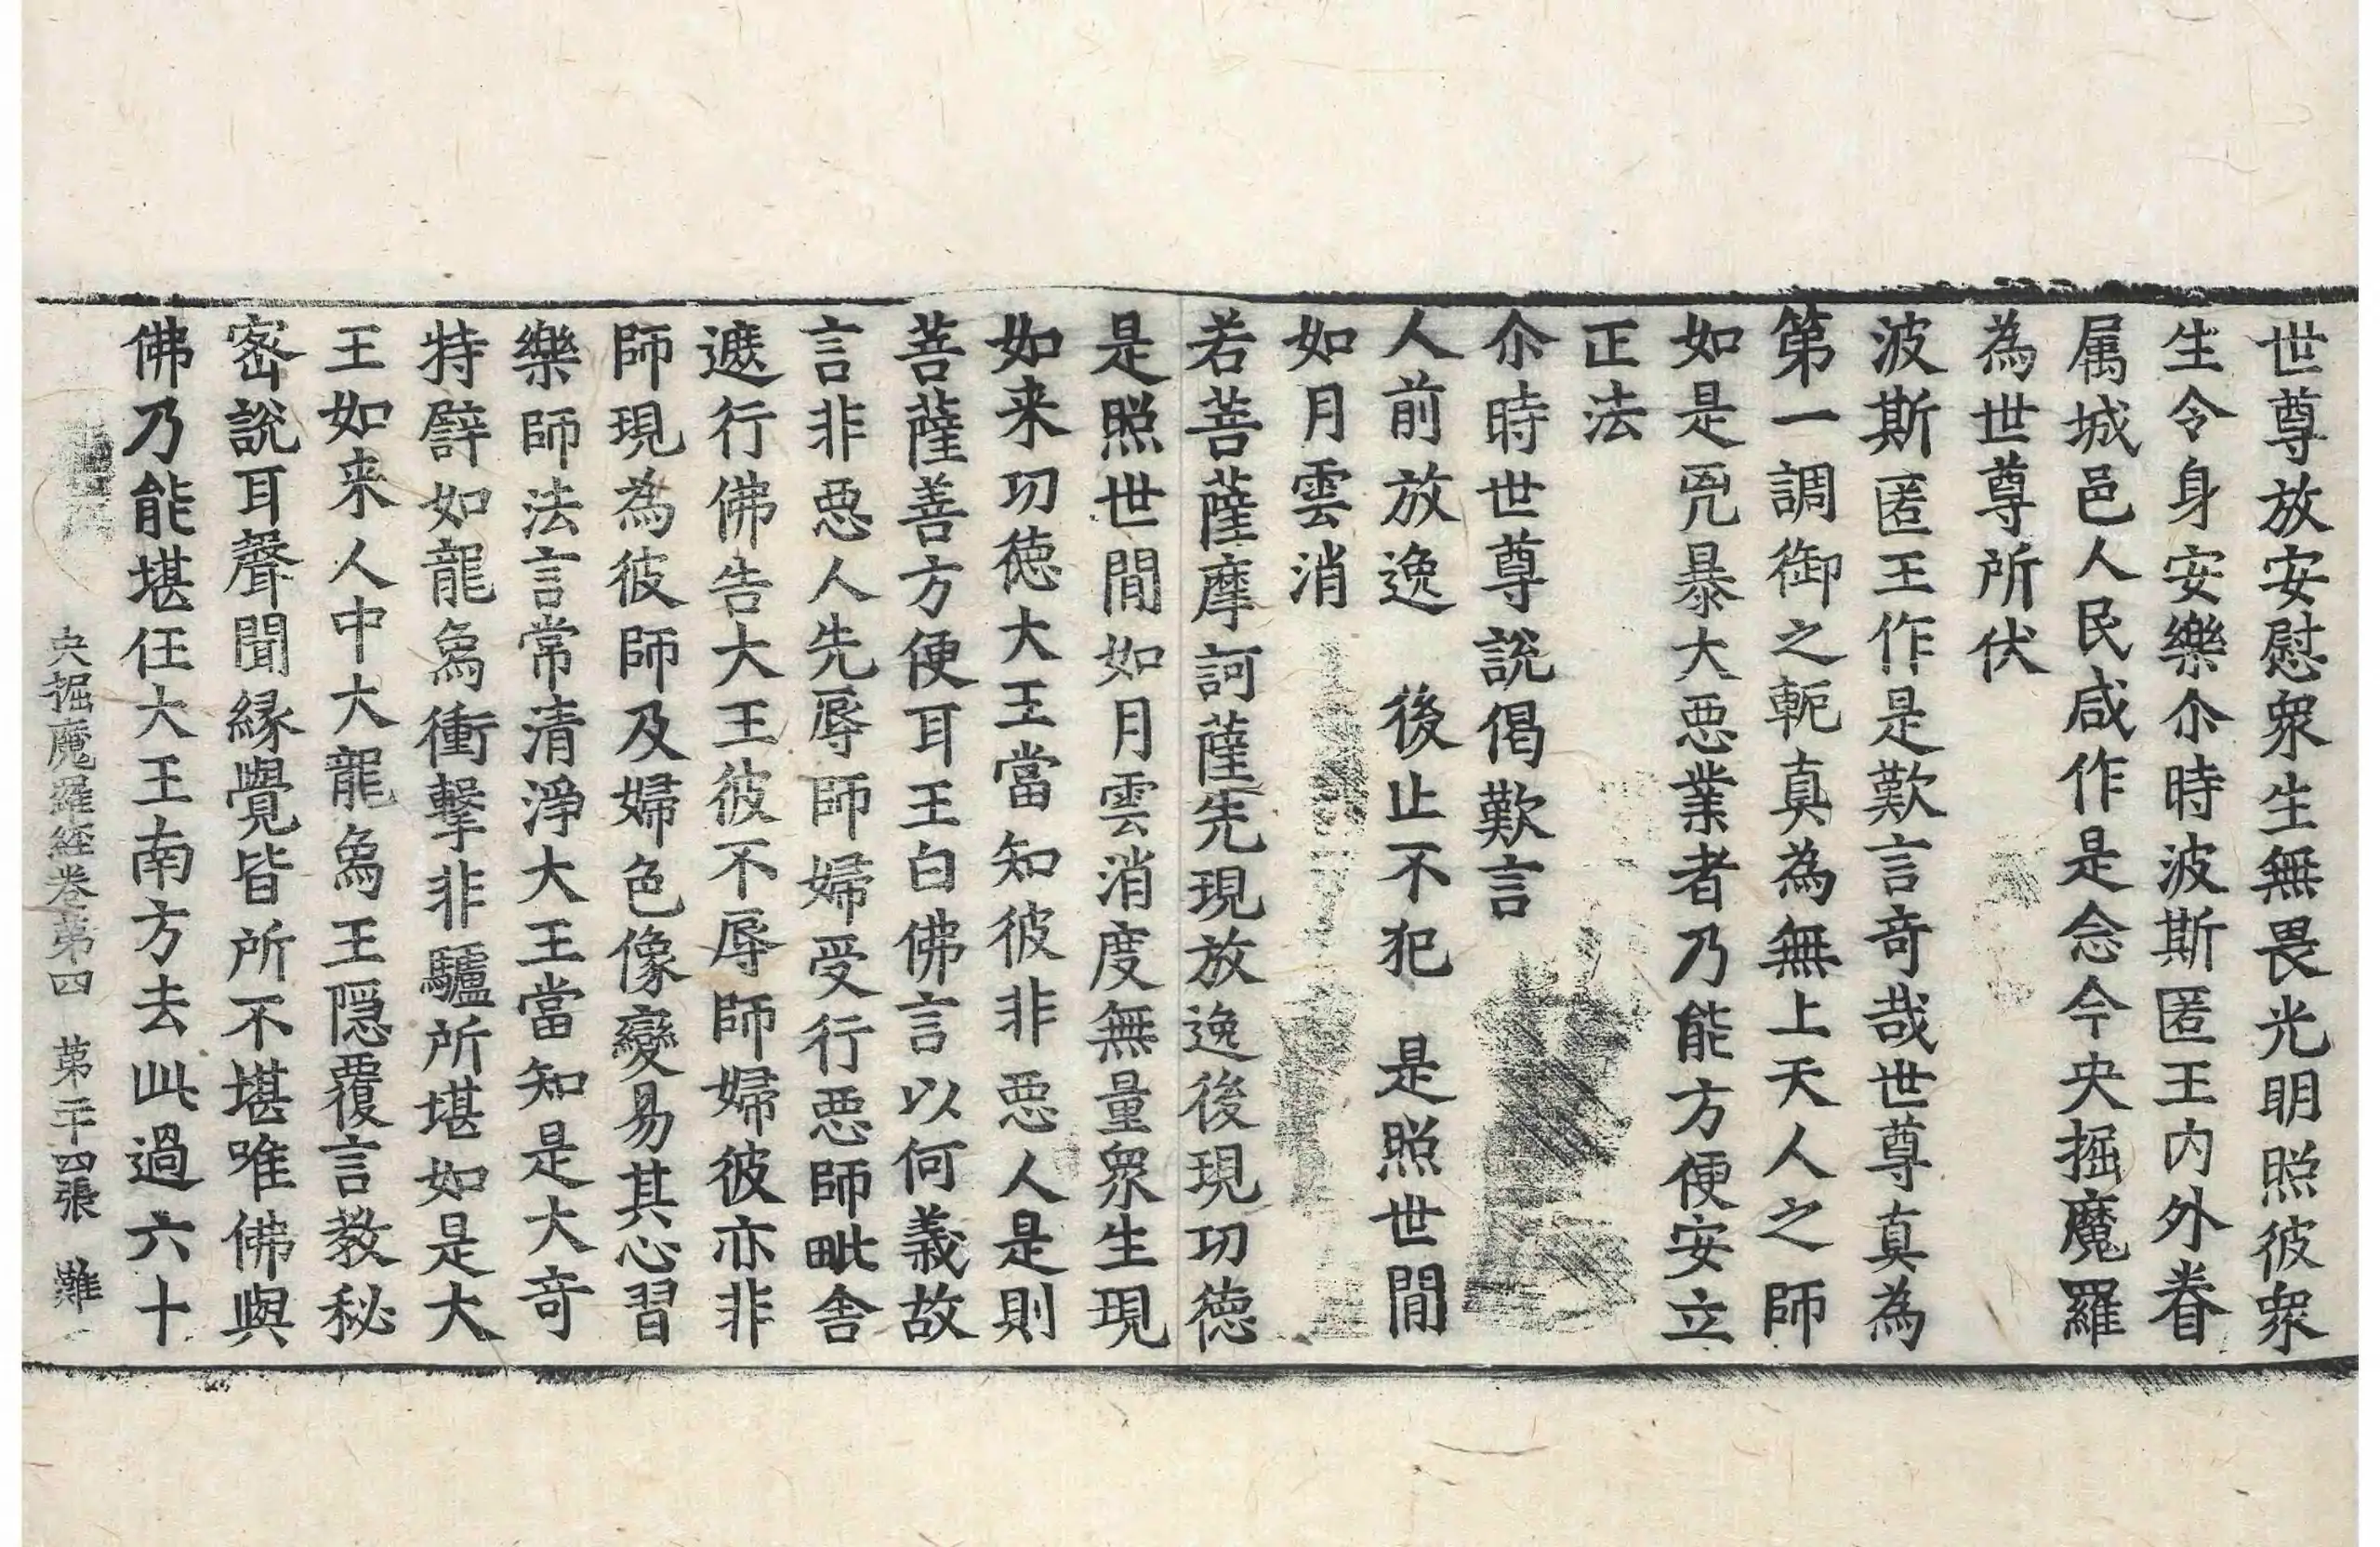 世尊放安慰衆生無畏光明照彼衆
生令身安樂尒時波斯匿王内外眷
属城邑人民咸作是念今央掘魔羅
為世尊所伏
波斯匿王作是歎言奇哉世尊真為
第一調御之軛真為無上天人之師
如是兇暴大悪業者乃能方便安立
正法
尒時世尊說偈歎言
人前放逸　後止不犯　是照世間
如月雲消
若菩薩摩訶薩先現放逸後現功徳
是照世間如月雲消度無量衆生現
如来功徳大王當知彼非悪人是則
菩薩善方便耳王白佛言以何義故
言非悪人先辱師婦受行悪師毗舎
遮行佛告大王彼不辱師婦彼亦非
師現為彼師及婦色像變易其心習
樂師法言常清淨大王當知是大奇
特譬如龍象衝擊非驢所堪如是大
王如来人中大龍象王隠覆言教秘
密說耳聲聞縁覺皆所不堪唯佛與
佛乃能堪任大王南方去此過六十
央掘魔羅経巻第四　第二十四張　難